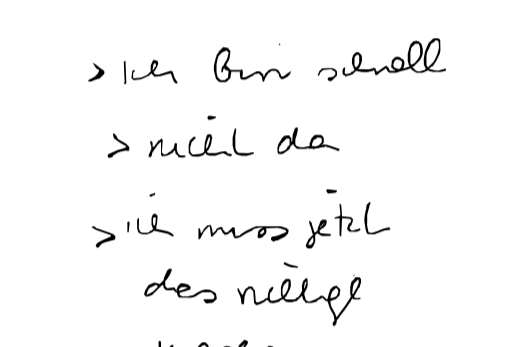 > Ich bin schnell
> nicht da
> ich muss jetzt
das